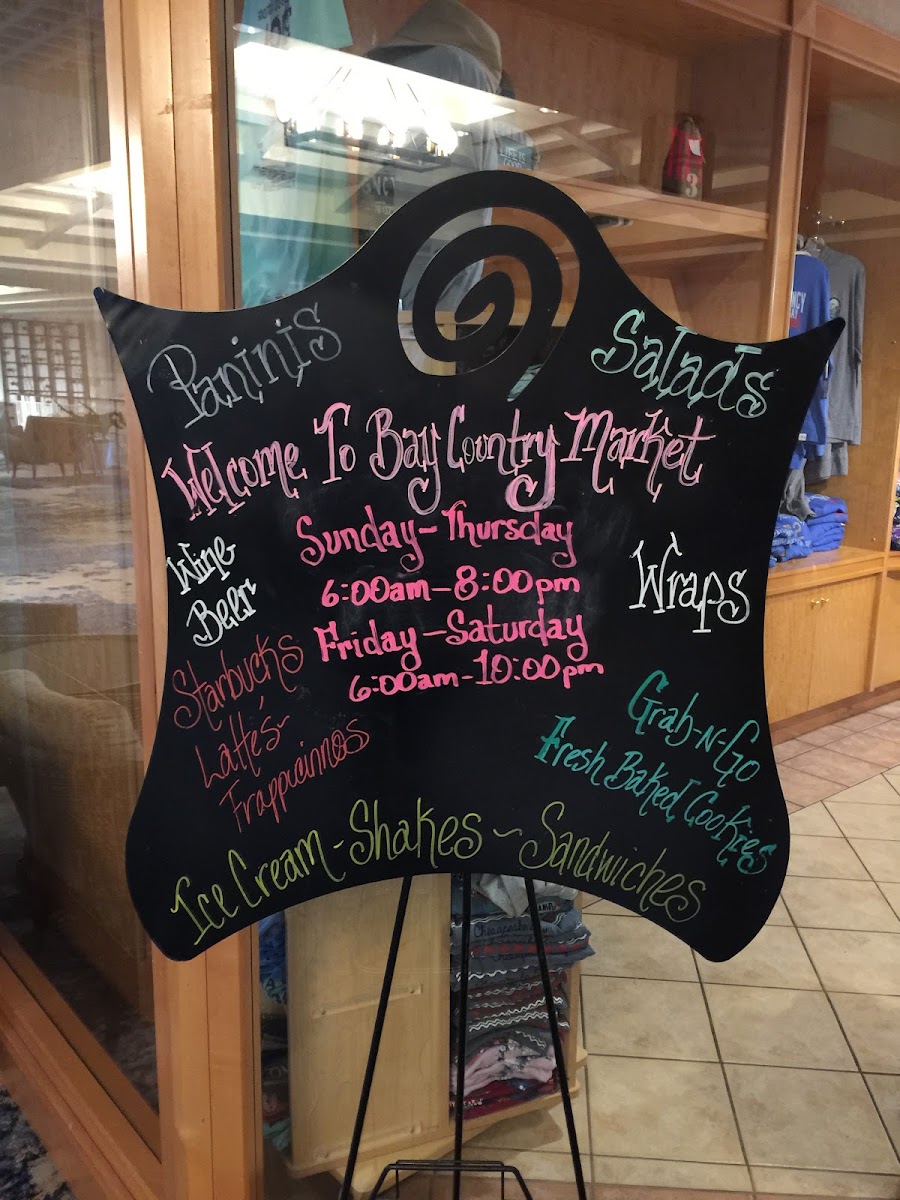 Paninis
Salads
Welcome To Bay Country Market
Sunday-Thursday
6:00am-8:00pm
Friday-Saturday
6:00am-10:00pm
Wine
Beer
Wraps
Starbucks
Lattés~
Frappiccinnos
Grab-N-Go
Fresh Baked Cookies
Ice Cream-Shakes~Sandwiches